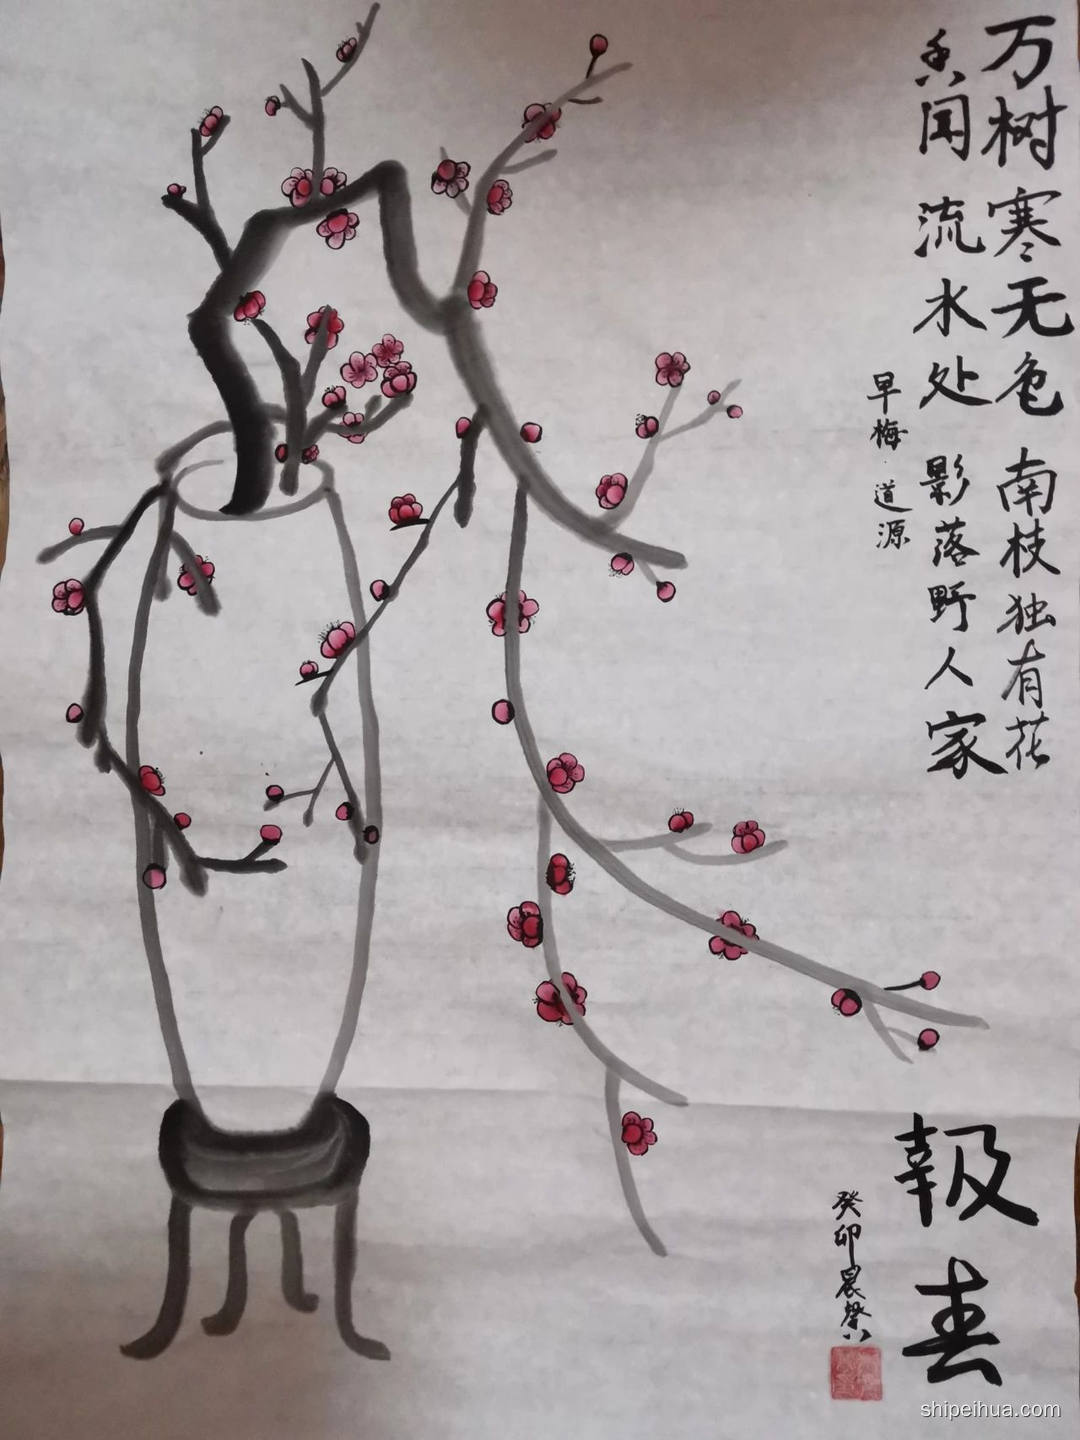 万树寒无色南枝独有花
香闻流水处影落野人家
早梅·道源
報春
癸卯晨
shipeihua.com